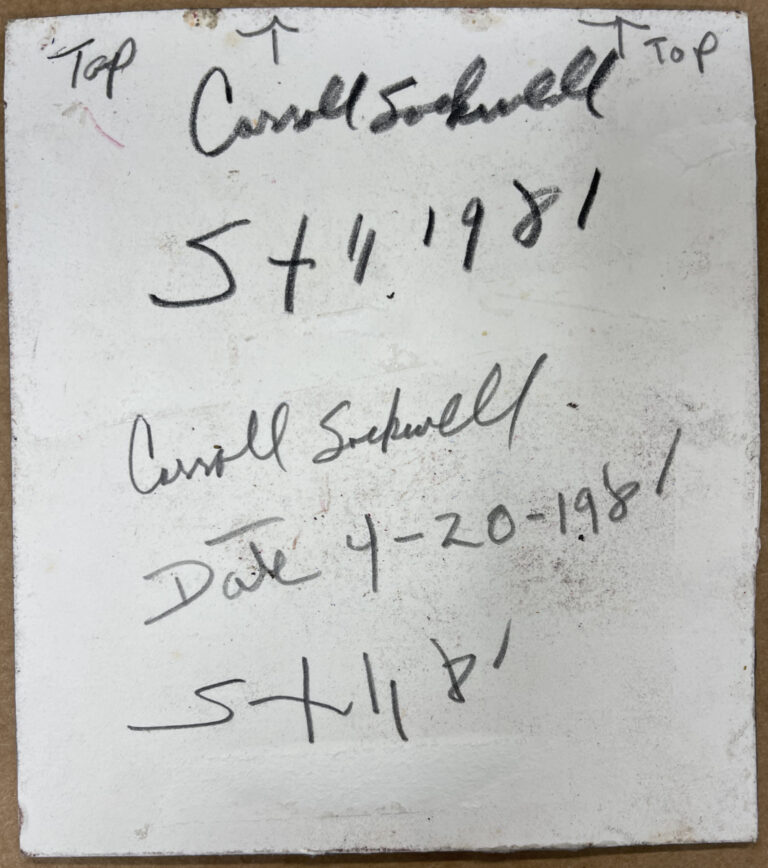 Top ↑ ↑ Top
Carroll Sockwell
1981
Carroll Sockwell
Date 4-20-1981
81